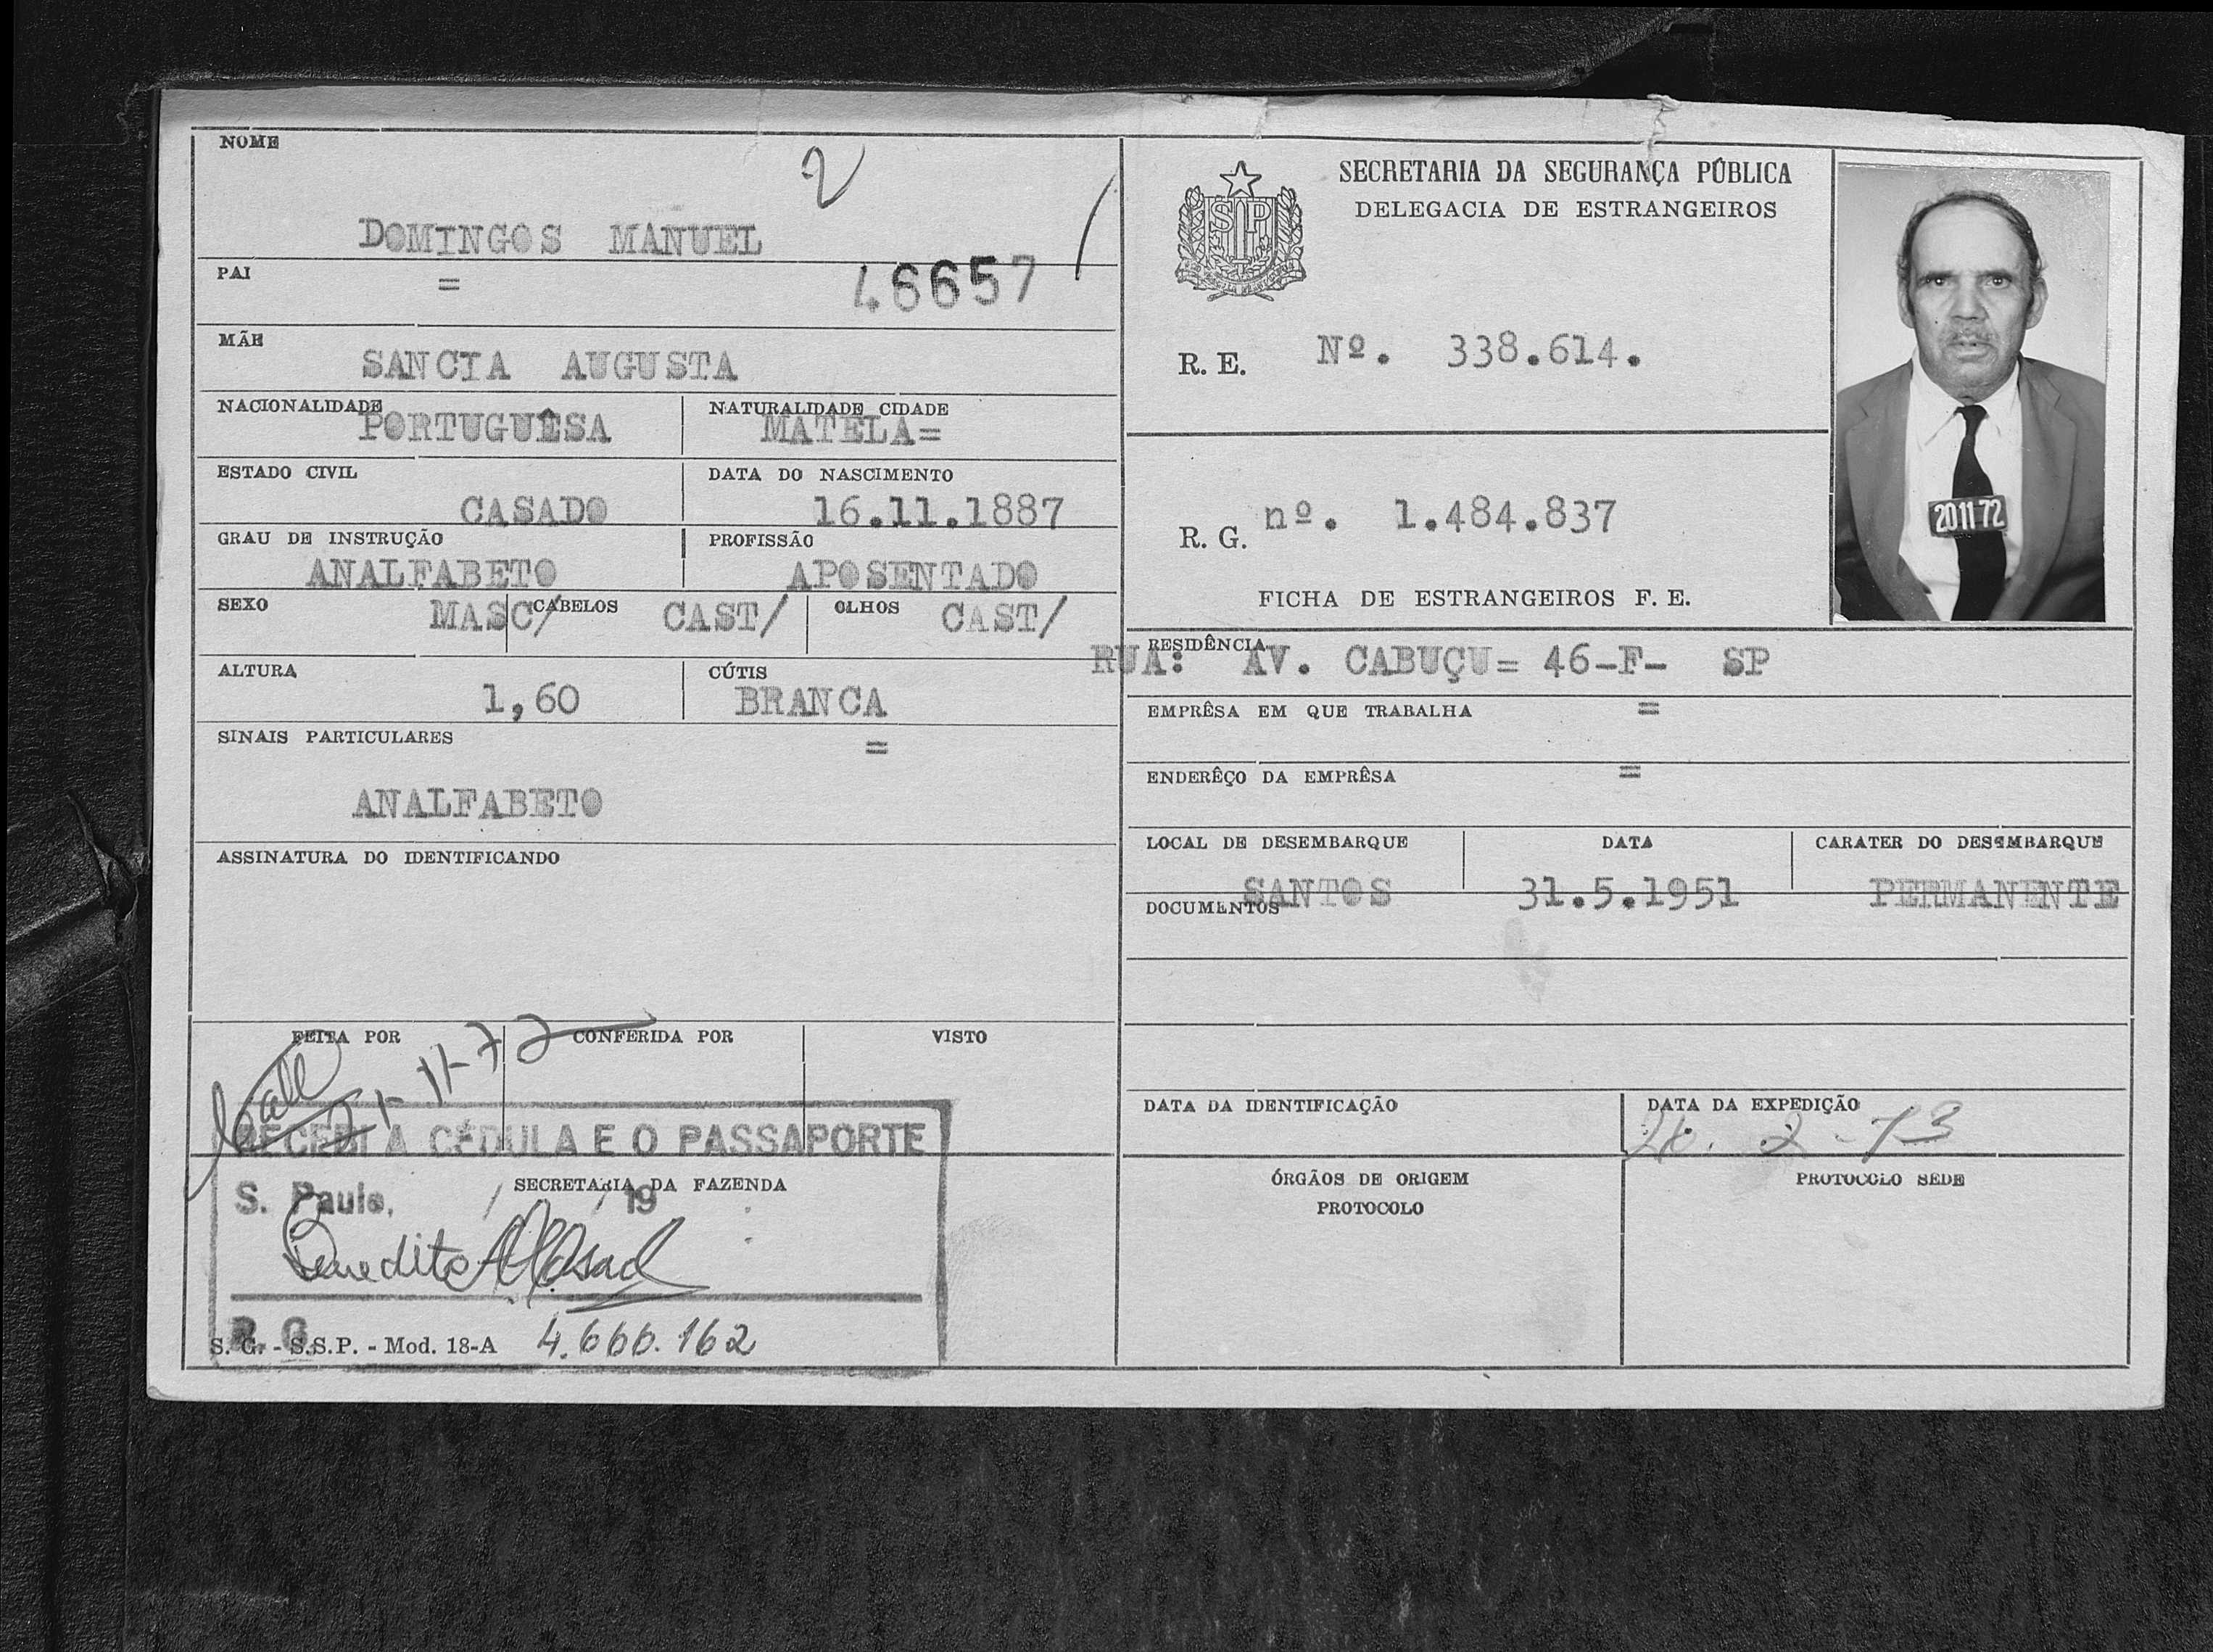 NOME
2
DOMINGOS MANUEL
PAI = 46657
MÃE
SANCIA AUGUSTA
NACIONALIDADE NATURALIDADE CIDADE
PORTUGUÊSA MATELA=
ESTADO CIVIL DATA DO NASCIMENTO
CASADO 16.11.1887
GRAU DE INSTRUÇÃO PROFISSÃO
ANALFABETO APOSENTADO
SEXO MASC/ CABELOS CAST/ OLHOS CAST/
ALTURA CÚTIS
1,60 BRANCA
SINAIS PARTICULARES =
ANALFABETO
ASSINATURA DO IDENTIFICANDO
FEITA POR CONFERIDA POR VISTO
21-11-72
RECEBI A CÉDULA E O PASSAPORTE
SECRETARIA DA FAZENDA
S. Paulo, / / 19
Benedito
R. G.
S. G. - S.S.P. - Mod. 18-A 4.666.162
SECRETARIA DA SEGURANÇA PÚBLICA
DELEGACIA DE ESTRANGEIROS
SP
R. E. Nº. 338.614.
R. G. nº. 1.484.837
FICHA DE ESTRANGEIROS F. E.
20 11 72
RESIDÊNCIA
RUA: AV. CABUÇU= 46-F- SP
EMPRÊSA EM QUE TRABALHA =
ENDERÊÇO DA EMPRÊSA =
LOCAL DE DESEMBARQUE DATA CARATER DO DESEMBARQUE
SANTOS 31.5.1951 PERMANENTE
DOCUMENTOS
DATA DA IDENTIFICAÇÃO DATA DA EXPEDIÇÃO
2-73
ÓRGÃOS DE ORIGEM PROTOCOLO SEDE
PROTOCOLO